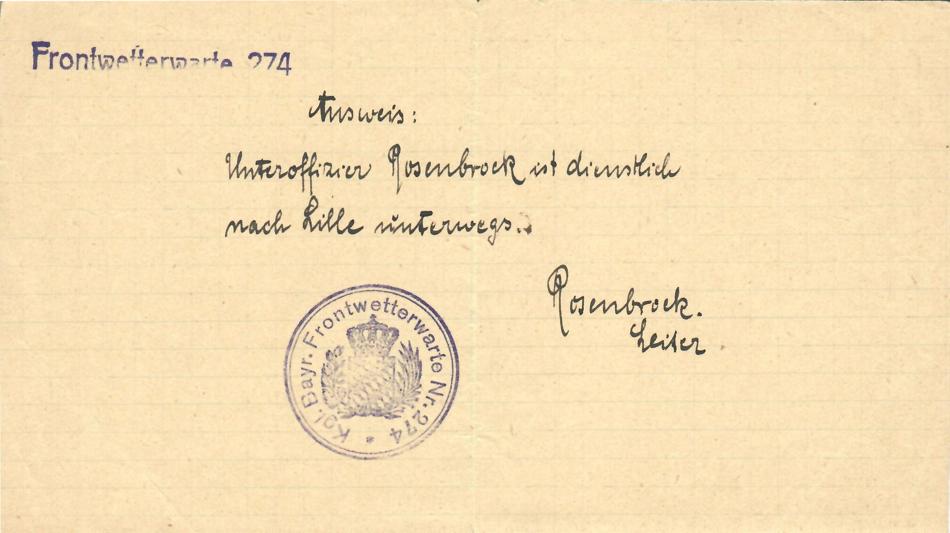 Frontwetterwarte 274
Ausweis:
Unteroffizier Rosenbrock ist dienstlich
nach Lille unterwegs.
Rosenbrock.
Leiter.
Kgl. Bayr. Frontwetterwarte Nr. 274 *